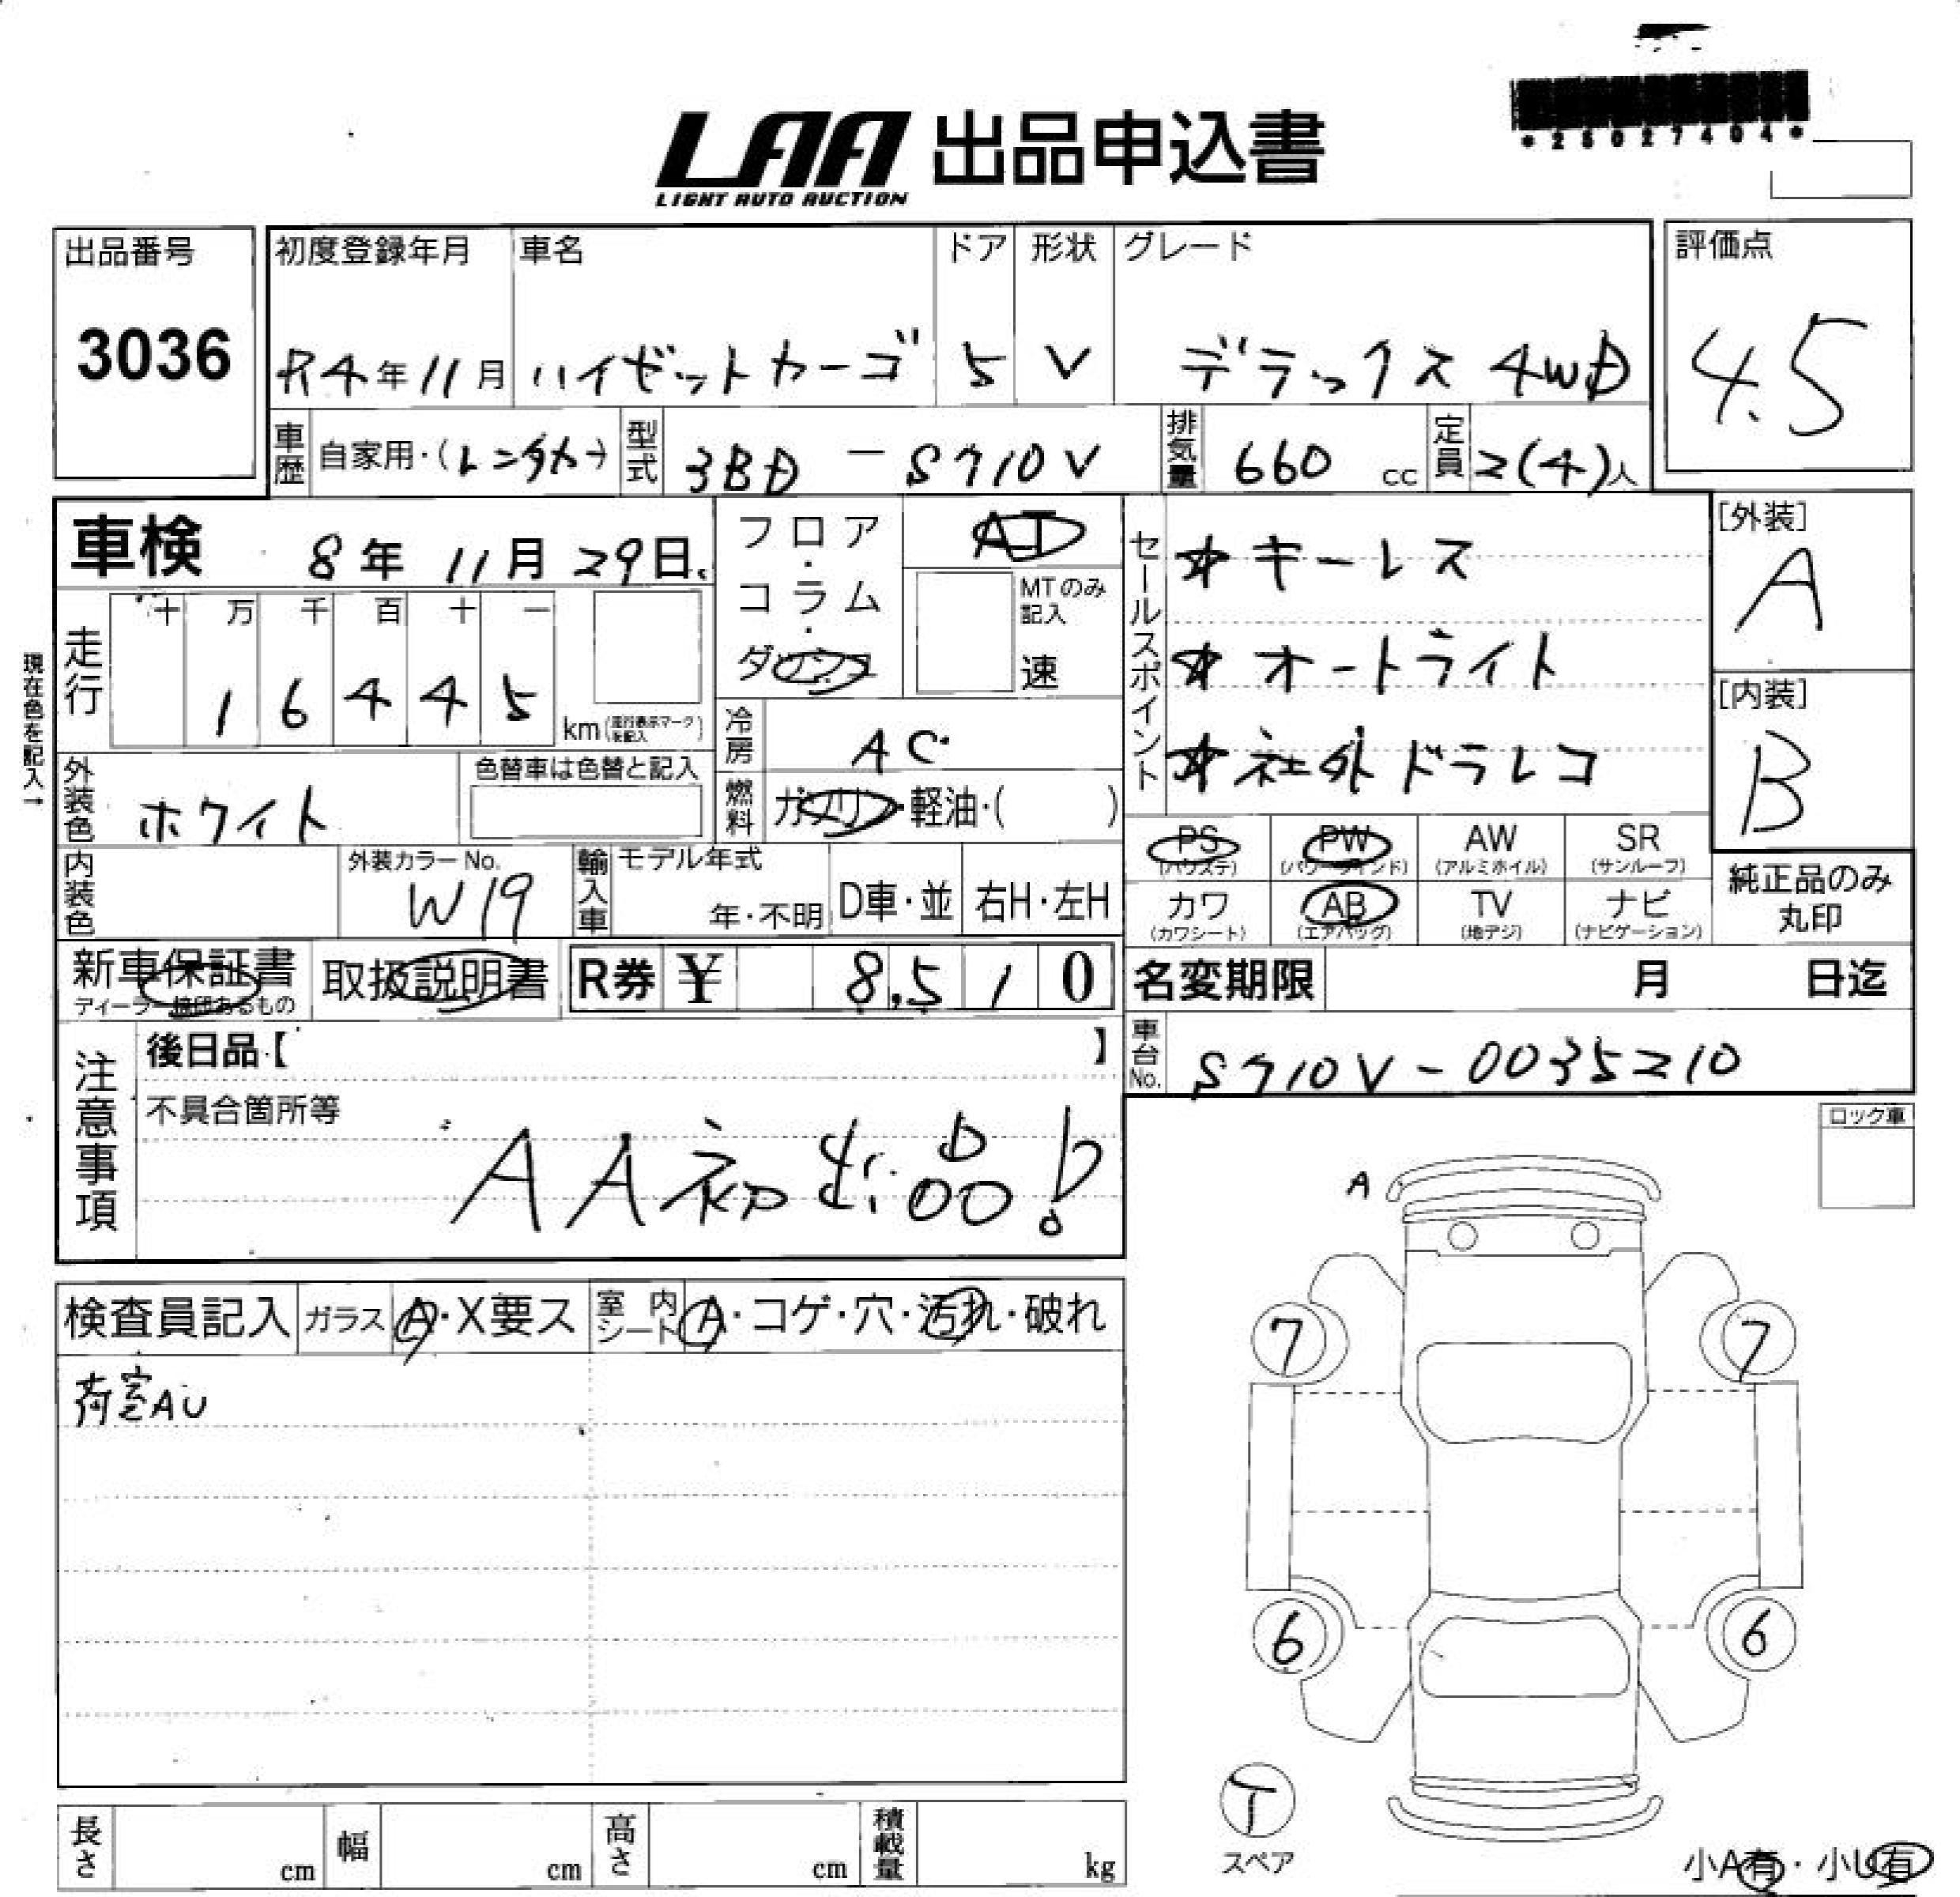 *25027404*
LAA 出品申込書
LIGHT AUTO AUCTION
出品番号
3036
初度登録年月
R4年11月
車名
ハイゼットカーゴ
ドア
5
形状
V
グレード
デラックス 4WD
評価点
4.5
車歴 自家用・(レンタカー)
型式 3BD - S710V
排気量 660 cc
定員 2(4)人
車検 8年 11月 29日
フロア・コラム・ダッシュ
AT
MTのみ記入
速
セールスポイント
☆ キーレス
☆ オートライト
☆ 社外ドラレコ
[外装]
A
[内装]
B
現在色を記入→
走行
十 万 千 百 十 一
1 6 4 4 5
km(走行表示マークを記入)
冷房 AC
燃料 ガソリン・軽油・( )
外装色 ホワイト
色替車は色替と記入
内装色
外装カラーNo.
W19
輸入車
モデル年式
年・不明
D車・並
右H・左H
PS
(パワステ)
PW
(パワーウインド)
AW
(アルミホイル)
SR
(サンルーフ)
カワ
(カワシート)
AB
(エアバッグ)
TV
(地デジ)
ナビ
(ナビゲーション)
純正品のみ
丸印
新車保証書
ディーラー捺印あるもの
取扱説明書
R券 ¥ 8,510
名変期限 月 日迄
車台No. S710V-0035210
注意事項
後日品【 】
不具合箇所等
AA初出品!
ロック車
A
検査員記入
ガラス A・X要ス
室内シート A・コゲ・穴・汚れ・破れ
荷室AU
7 7
6 6
T
スペア
長さ cm
幅 cm
高さ cm
積載量 kg
小A有・小U有